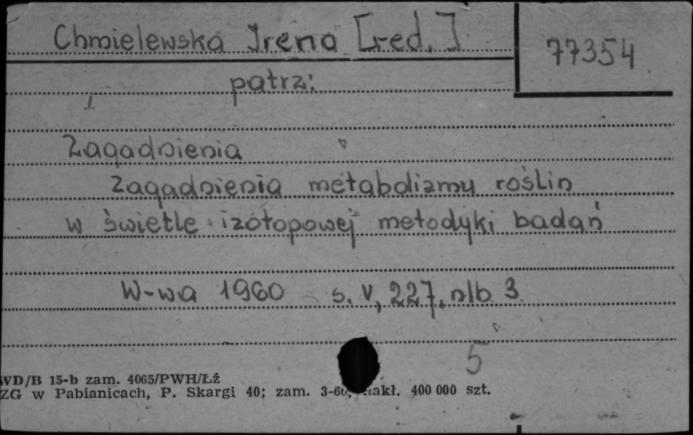 Chmielewska Irena [red.]
77354
patrz:
Zagadnienia
Zagadnienia metabolizmu roślin
w świetle izotopowej metodyki badań
W-wa 1960 s. V, 227, nlb 3
5
WD/B 15-b zam. 4065/PWH/Łź
ZG w Pabianicach, P. Skargi 40; zam. nakł. 400 000 szt.